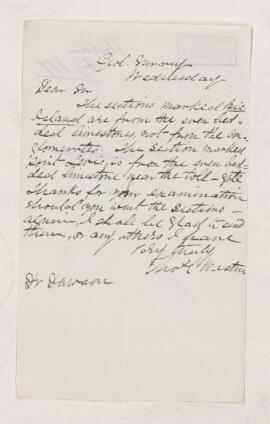 Geol. Survey
Wednesday
Dear Sir
The sections marked Bic
Island are from the even bed-
ded limestones, not from the con-
glomerates. The section marked
Point Levis, is from the even bed-
ded limestone near the toll-gate
Thanks for your examination
Should you want the sections
again, I shall be glad to send
them, or any others I have
Very truly
Thos C Weston
Dr Dawson